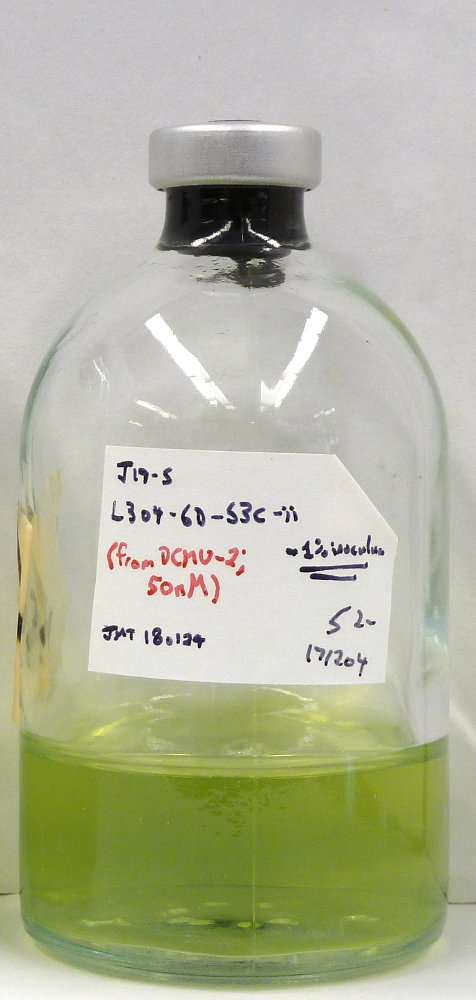 J19-5
L304-6D-S3C-ii
(from DCMU-2; 50nM)
~1% inoculum
JMT 180124
52-
171204